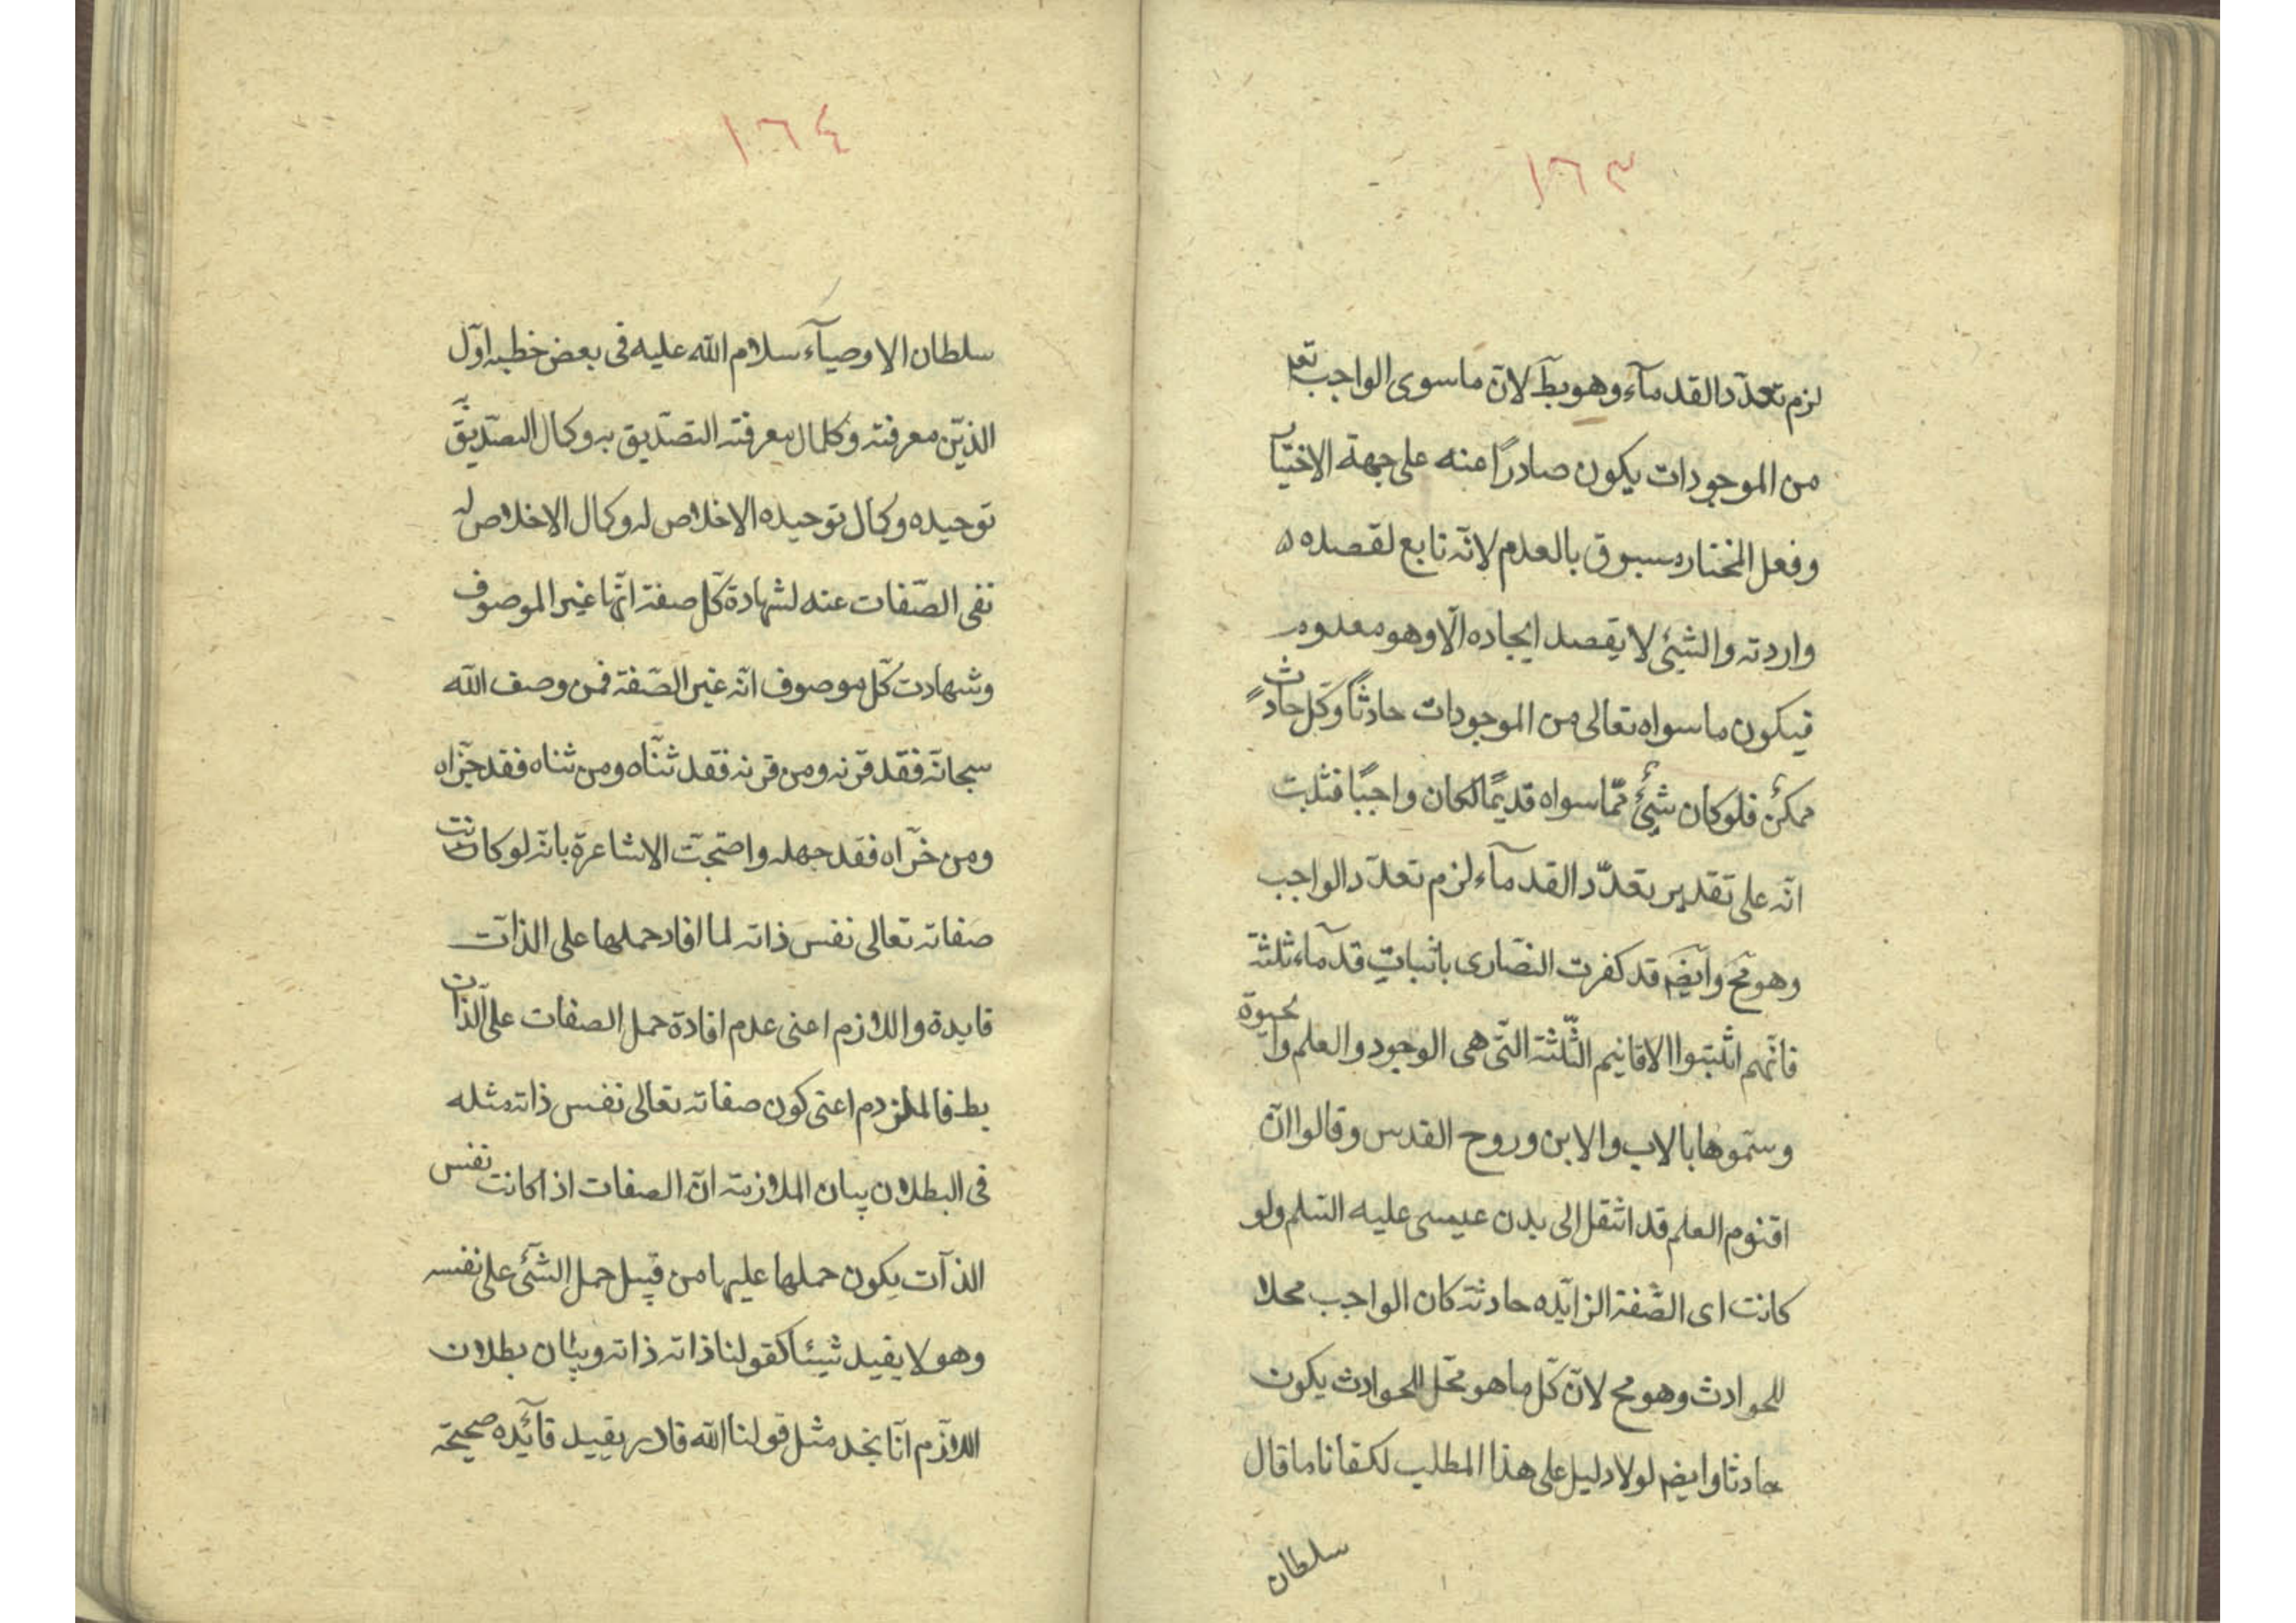 ١٦٣
لزم تعدّد القدمآء وهو بط لانّ ما سوى الواجب تعـ
من الموجودات يكون صادرًا عنه على جهة الاختيآ
وفعل المختار مسبوق بالعدم لانّه تابع لقصده ٥
واردته والشيئ لا يقصد ايجاده الّا وهو معدوم
فيكون ما سواه تعالى من الموجودات حادثًا وكلّ حادث
ممكنٌ فلو كان شيئٌ ممّا سواه قديمًا لكان واجبًا فثبت
انّه على تقدير تعدّد القدمآء لزم تعدّد الواجب
وهو مح وايضم قد كفرت النصّارى باثبات قدمآء ثلثة
فانّهم اثبتوا الاقانيم الثّلثة التّى هى الوجود والعلم والحيوة
وسمّوها بالاب والابن وروح القدس وقالوا انّ
اقنوم العلم قد انتقل الى بدن عيسى عليه السّلم ولو
كانت اى الصّفة الزايّده حادثة كان الواجب محلا
للحوادث وهو مح لانّ كلّ ما هو محّل للحوادث يكون
حادثا وايضم لولا دليل على هذا المطلب لكفانا ما قال
سلطان
١٦٤
سلطان الاوصيآء سلام الله عليه فى بعض خطبه اوّل
الدّين معرفته وكمال معرفته التصّديق به وكمال التصّديق
توحيده وكمال توحيده الاخلاص له وكمال الاخلاص له
نفى الصّفات عنه لشهادة كلّ صفة انّها غير الموصوف
وشهادت كلّ موصوف انّه غير الصّفة فمن وصف الله
سبحانه فقد قرنه ومن قرنه فقد ثنّاه ومن ثناه فقد جزّاه
ومن جزّاه فقد جهله واحتجّت الاشاعرة بانّه لو كانت
صفاته تعالى نفس ذاته لما افاد حملها على الذات
فايدة واللازم اعنى عدم افادة حمل الصفات على الّذات
بط فالملزوم اعنى كون صفاته تعالى نفس ذاته مثله
فى البطلان بيان الملازمة انّ الصفات اذا كانت نفس
الذآت يكون حملها عليها من قبيل حمل الشّئ على نفسه
وهو لا يفيد شيئا كقولنا ذاته ذاته وبيان بطلان
اللازّم انّا نجد مثل قولنا الله قادر يفيد فآئده صحيحة